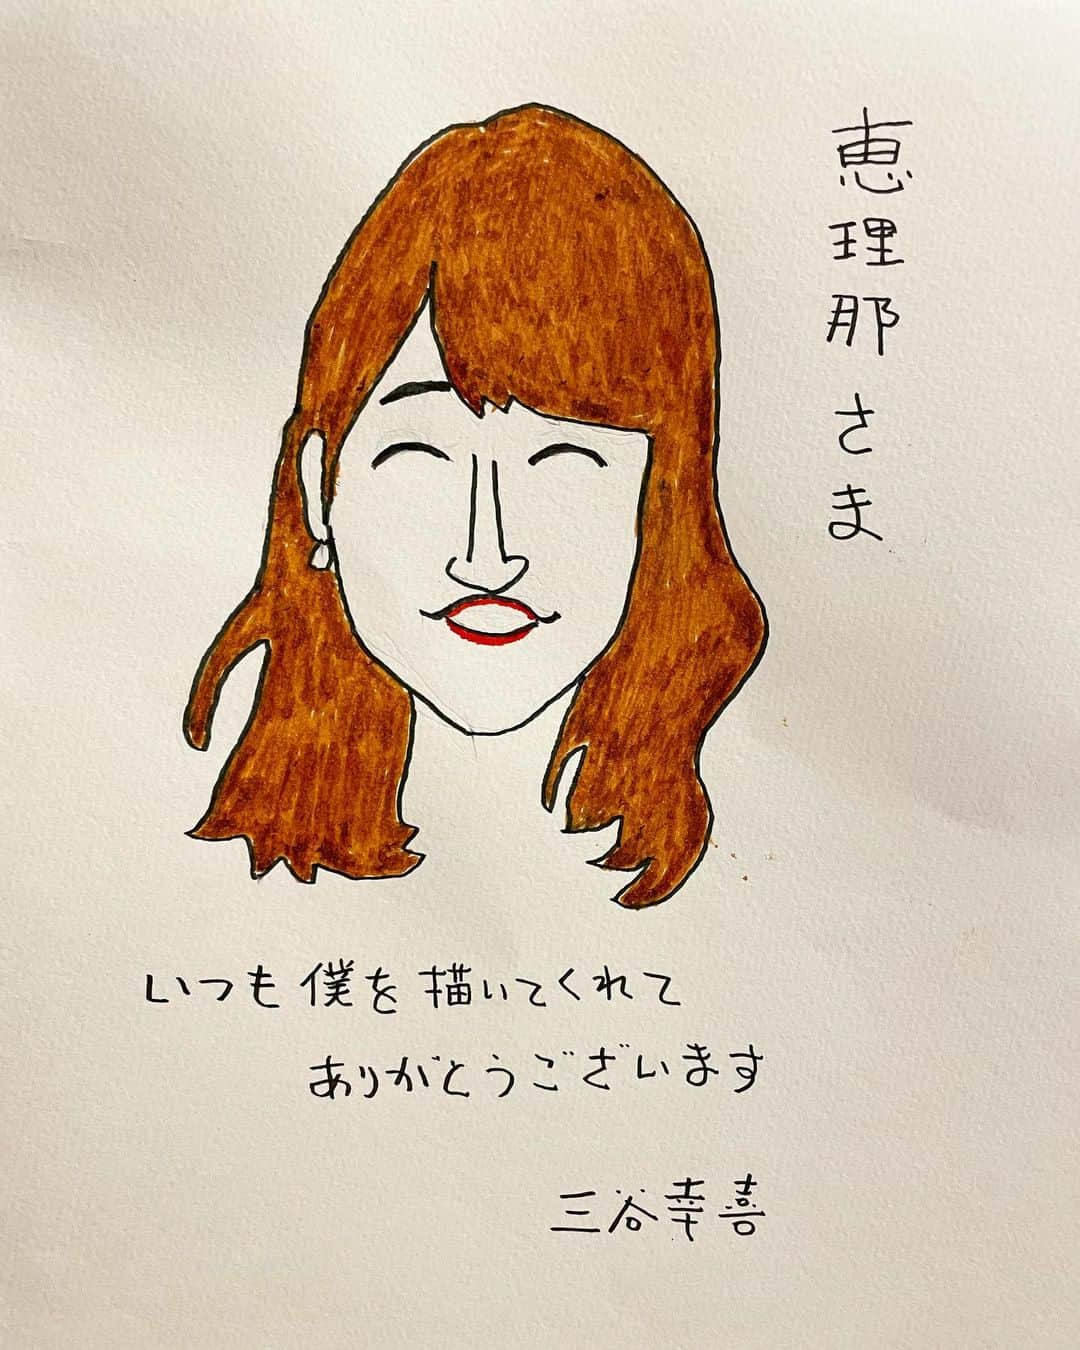 恵理那さま
いつも僕を描いてくれて
ありがとうございます
三谷幸喜